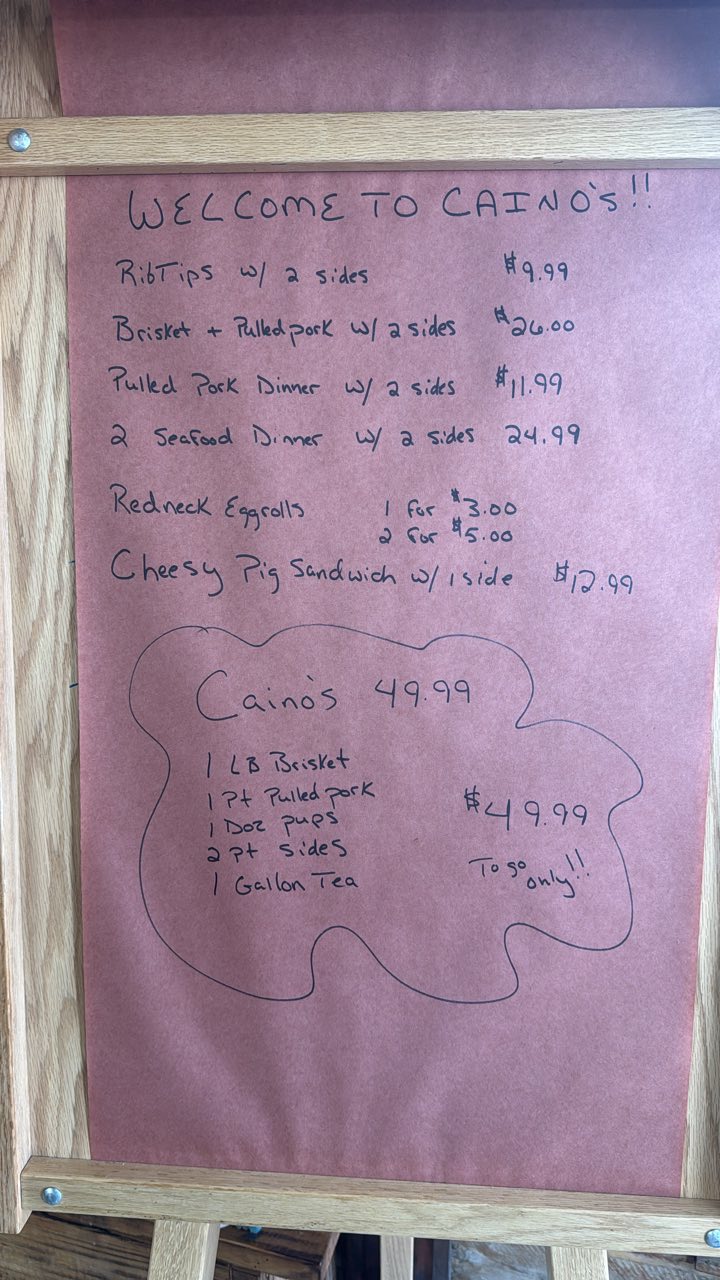 WELCOME TO CAINO'S!!
RibTips w/ 2 sides $9.99
Brisket + Pulled pork w/ 2 sides $26.00
Pulled Pork Dinner w/ 2 sides $11.99
2 Seafood Dinner w/ 2 sides 24.99
Redneck Eggrolls 1 for $3.00
2 for $5.00
Cheesy Pig Sandwich w/ 1 side $12.99
Caino's 49.99
1 LB Brisket
1 Pt Pulled pork
1 Doz pups
2 pt sides
1 Gallon Tea
$49.99
To go only!!